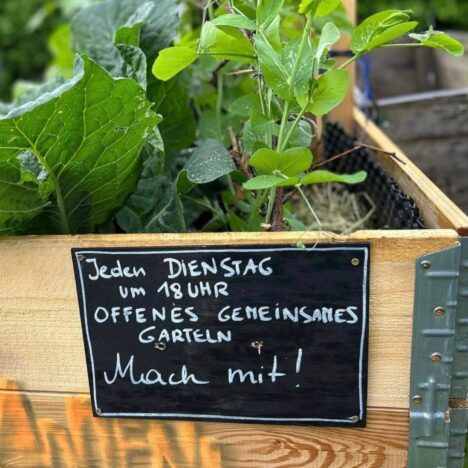 Jeden DIENSTAG
um 18 UHR
OFFENES GEMEINSAMES
GARTELN
Mach mit!